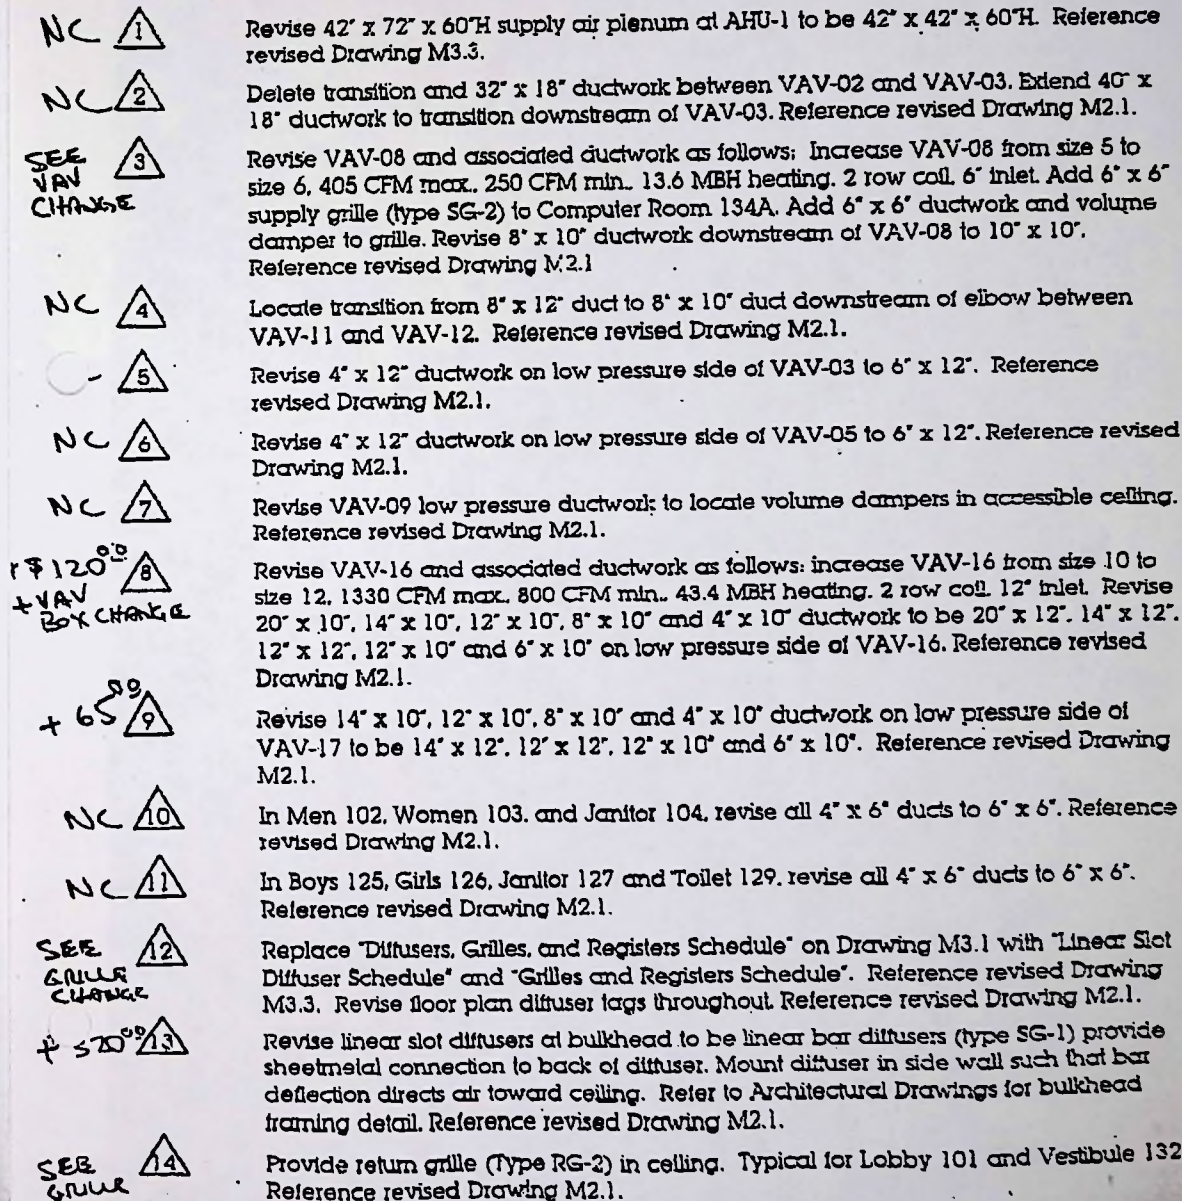 NC 1 Revise 42" x 72" x 60"H supply air plenum at AHU-1 to be 42" x 42" x 60"H. Reference
revised Drawing M3.3.
NC 2 Delete transition and 32" x 18" ductwork between VAV-02 and VAV-03. Extend 40" x
18" ductwork to transition downstream of VAV-03. Reference revised Drawing M2.1.
SEE VAV CHANGE 3 Revise VAV-08 and associated ductwork as follows; Increase VAV-08 from size 5 to
size 6, 405 CFM max., 250 CFM min., 13.6 MBH heating, 2 row coil, 6" inlet. Add 6" x 6"
supply grille (type SG-2) to Computer Room 134A. Add 6" x 6" ductwork and volume
damper to grille. Revise 8" x 10" ductwork downstream of VAV-08 to 10" x 10".
Reference revised Drawing M.2.1
NC 4 Locate transition from 8" x 12" duct to 8" x 10" duct downstream of elbow between
VAV-11 and VAV-12. Reference revised Drawing M2.1.
- 5 Revise 4" x 12" ductwork on low pressure side of VAV-03 to 6" x 12". Reference
revised Drawing M2.1.
NC 6 Revise 4" x 12" ductwork on low pressure side of VAV-05 to 6" x 12". Reference revised
Drawing M2.1.
NC 7 Revise VAV-09 low pressure ductwork to locate volume dampers in accessible ceiling.
Reference revised Drawing M2.1.
+ $120.00 + VAV BOX CHANGE 8 Revise VAV-16 and associated ductwork as follows: increase VAV-16 from size 10 to
size 12, 1330 CFM max., 800 CFM min., 43.4 MBH heating, 2 row coil, 12" inlet. Revise
20" x 10", 14" x 10", 12" x 10", 8" x 10" and 4" x 10" ductwork to be 20" x 12", 14" x 12",
12" x 12", 12" x 10" and 6" x 10" on low pressure side of VAV-16. Reference revised
Drawing M2.1.
+ 65 00 9 Revise 14" x 10", 12" x 10", 8" x 10" and 4" x 10" ductwork on low pressure side of
VAV-17 to be 14" x 12", 12" x 12", 12" x 10" and 6" x 10". Reference revised Drawing
M2.1.
NC 10 In Men 102, Women 103, and Janitor 104, revise all 4" x 6" ducts to 6" x 6". Reference
revised Drawing M2.1.
NC 11 In Boys 125, Girls 126, Janitor 127 and Toilet 129, revise all 4" x 6" ducts to 6" x 6".
Reference revised Drawing M2.1.
SEE GRILLE CHANGE 12 Replace "Diffusers, Grilles, and Registers Schedule" on Drawing M3.1 with "Linear Slot
Diffuser Schedule" and "Grilles and Registers Schedule". Reference revised Drawing
M3.3. Revise floor plan diffuser tags throughout. Reference revised Drawing M2.1.
+ 520 00 13 Revise linear slot diffusers at bulkhead to be linear bar diffusers (type SG-1) provide
sheetmetal connection to back of diffuser. Mount diffuser in side wall such that bar
deflection directs air toward ceiling. Refer to Architectural Drawings for bulkhead
framing detail. Reference revised Drawing M2.1.
SEE GRILLE 14 Provide return grille (Type RG-2) in ceiling. Typical for Lobby 101 and Vestibule 132
Reference revised Drawing M2.1.